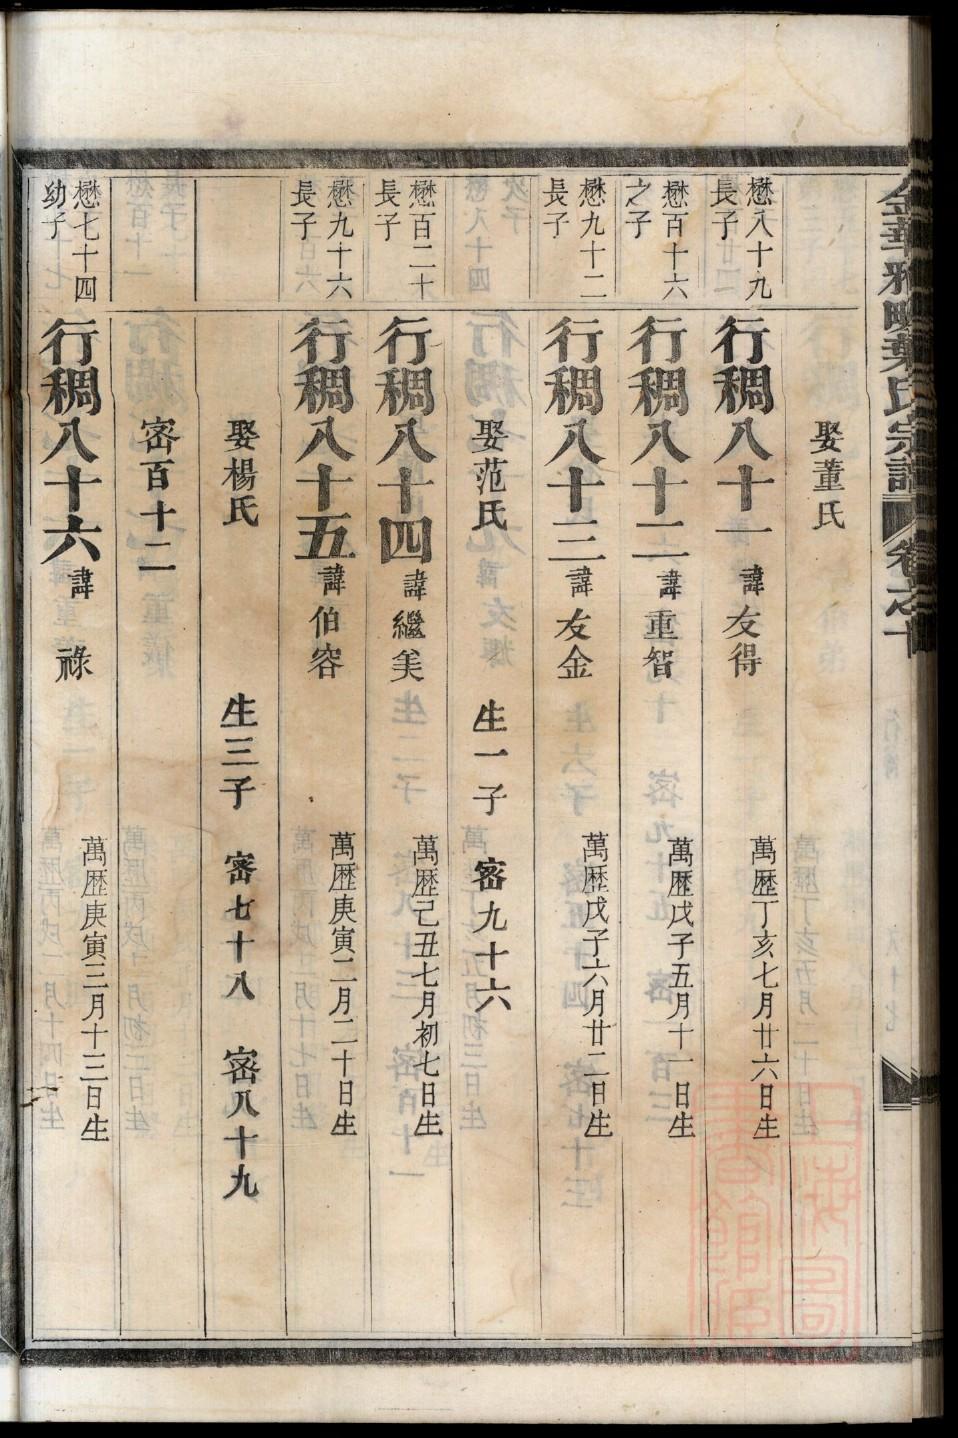 金華雅畈葉氏宗譜 卷之十
娶董氏
懋八十九長子 行稠八十一 諱友得 萬歷丁亥七月廿六日生
懋百十六之子 行稠八十二 諱重智 萬歷戊子五月十一日生
懋九十二長子 行稠八十三 諱友金 萬歷戊子六月廿二日生
娶范氏 生一子 宻九十六
懋百二十長子 行稠八十四 諱繼美 萬歷己丑七月初七日生
懋九十六長子 行稠八十五 諱伯容 萬歷庚寅二月二十日生
娶楊氏 生三子 宻七十八 宻八十九
宻百十二
懋七十四幼子 行稠八十六 諱祿 萬歷庚寅三月十三日生
上海圖書館藏